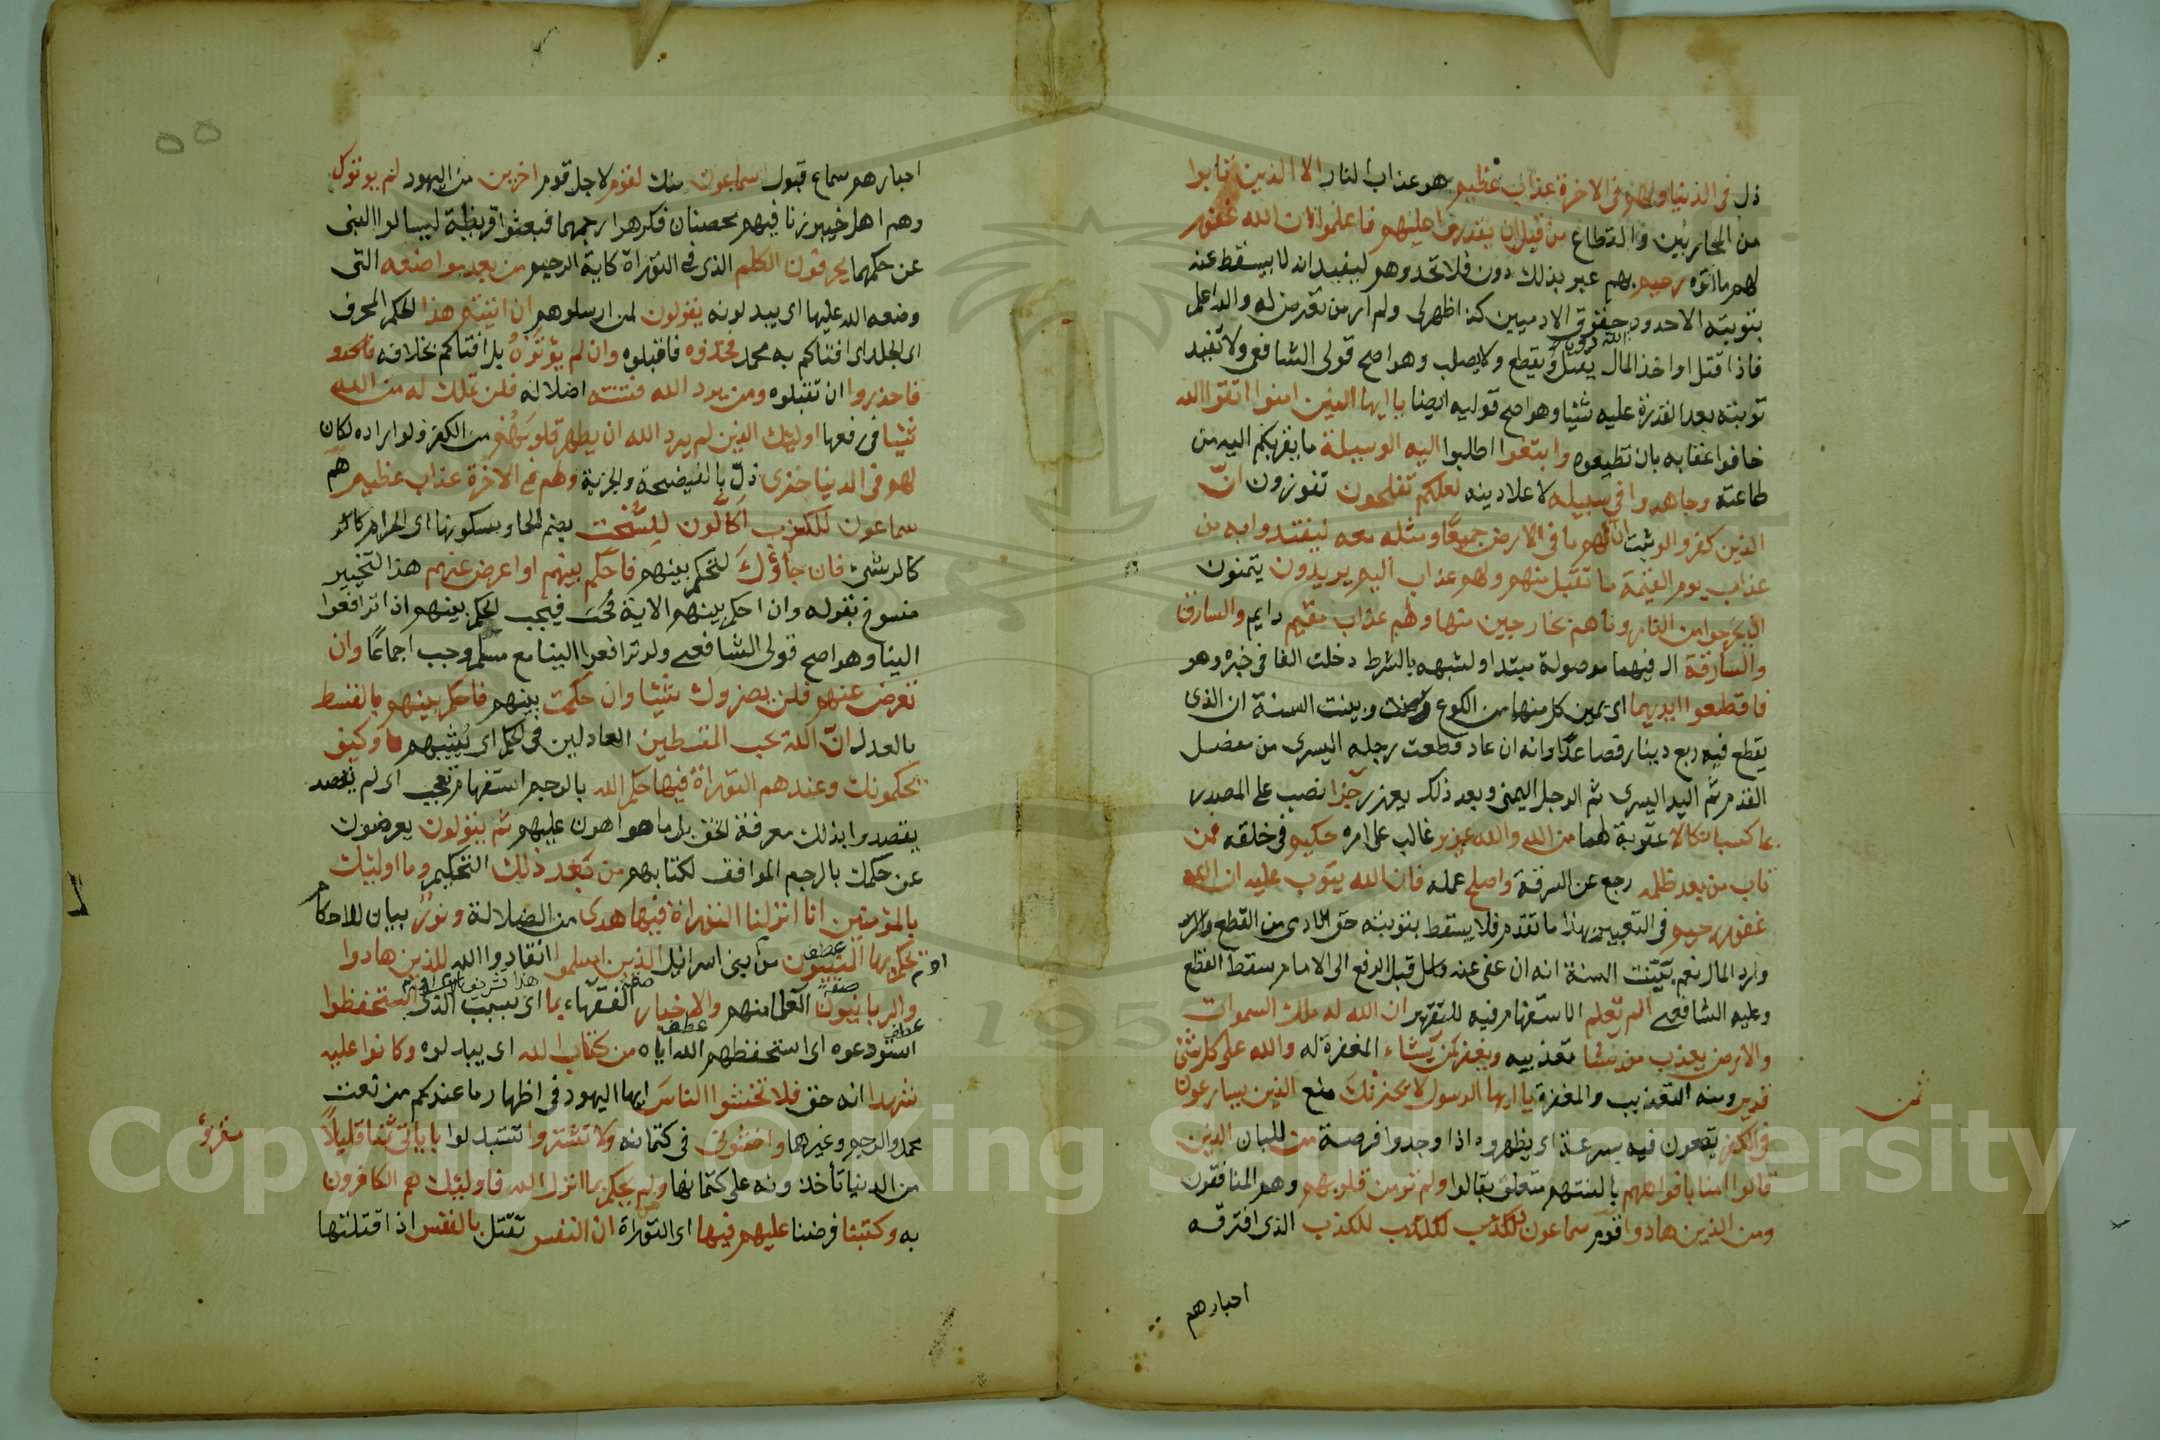 ذل في الدنيا ولهم في الاخرة عذاب عظيم هو عذاب النار الا الذين تابوا
من المحاربين والقطاع من قبل ان تقدروا عليهم فاعلموا ان الله غفور
لهم ما اتوه رحيم بهم عبر بذلك دون فلا تحدوهم ليفيد انه لا يسقط عنه
بتوبته الا حدود حقوق الادميين كذا ظهر لي ولم ار من تعرض له والله اعلم
فاذا قتل او اخذ المال يقتل ويقطع ولا يصلب وهو اصح قولي الشافعي ولا تفيد
توبته بعد القدرة عليه شئيا وهو اصح قوليه ايضا يا ايها الذين امنوا اتقوا الله
خافوا عقابه بان تطيعوه وابتغوا اطلبوا اليه الوسيلة ما يقربكم اليه من
طاعته وجاهدوا في سبيله لاعلا دينه لعلكم تفلحون تفوزون ان
الذين كفروا لو ثبت ان لهم ما في الارض جميعا ومثله معه ليفتدوا به من
عذاب يوم القيمة ما تقبل منهم ولهم عذاب اليم يريدون يتمنون
ان يخرجوا من النار وما هم بخارجين منها ولهم عذاب مقيم دايم والسارق
والسارقة ال فيهما موصولة مبتدا ولشبهه بالشرط دخلت الفا في خبره وهو
فاقطعوا ايديهما اي يمين كل منهما من الكوع وبينت السنة ان الذي
يقطع فيه ربع دينار فصاعدا وانه ان عاد قطعت رجله اليسرى من مفصل
القدم ثم اليد اليسرى ثم الرجل اليمنى وبعد ذلك يعزر جزا نصب على المصدر
بما كسبا نكالا عقوبة لهما من الله والله عزيز غالب على امره حكيم في خلقه فمن
تاب من بعد ظلمه رجع عن السرقة واصلح عمله فان الله يتوب عليه ان الله
غفور رحيم في التعبير بهذا ما تقدم فلا يسقط بتوبته حق الادمي من القطع
ورد المال نعم بينت السنة انه ان عفى عنه قبل الرفع الى الامام سقط القطع
وعليه الشافعي الم تعلم الاستفهام فيه للتقرير ان الله له ملك السموات
والارض يعذب من يشا تعذيبه ويغفر لمن يشاء المغفرة له والله على كل شئ
قدير ومنه التعذيب والمغفرة يا ايها الرسول لا يحزنك صنع الذين يسارعون
في الكفر يقعون فيه بسرعة اي يظهروه اذا وجدوا فرصة من للبيان الذين
قالوا امنا بافواههم بالسنتهم متعلق بقالوا ولم تومن قلوبهم وهم المنافقون
ومن الذين هادوا قوم سماعون للكذب للكذب للكذب الذي افترته
احبارهم
احبارهم سماع قبول سماعون منك لقوم لاجل قوم اخرين من اليهود لم يوتوك
وهم اهل خيبر زنا فيهم محصنان فكرهوا رجمهما فبعثوا قريظة ليسالوا النبي
عن حكمهما يحرفون الكلم الذي في التوراة كاية الرجم من بعد مواضعه التي
وضعه الله عليها اي يبدلونه يقولون لمن ارسلوهم ان اتيتم هذا الحكم المحرف
اي الجلد اي افتاكم به محمد فخذوه فاقبلوه وان لم يؤتوه بل افتاكم بخلافه فاحذرو
فاحذروا ان تقبلوه ومن يرد الله فتنته اضلاله فلن تملك له من الله
شئيا في دفعها اوليك الذين لم يرد الله ان يطهر قلوبهم من الكفر ولو اراده لكان
لهم في الدنيا خزي ذل بالفضيحة والجزية ولهم في الاخرة عذاب عظيم هم
سماعون للكذب اكالون للسحت بضم الحا وسكونها اي الحرام
كالرشى فان جاؤك لتحكم بينهم فاحكم بينهم او اعرض عنهم هذا التخيير
منسوخ بقوله وان احكم بينهم الاية فيجب الحكم بينهم اذا ترافعوا
الينا وهو اصح قولي الشافعي ولو ترافعوا الينا مع مسلم وجب اجماعا وان
تعرض عنهم فلن يضروك شئيا وان حكمت بينهم فاحكم بينهم بالقسط
بالعدل ان الله يحب المقسطين العادلين في الحكم اي يثيبهم وكيف
يحكمونك وعندهم التوراة فيها حكم الله بالرجم استفهام تعجيب اي لم يقصد
يقصدوا بذلك معرفة الحق بل ما هو اهون عليهم ثم يتولون يعرضون
عن حكمك بالرجم الموافق لكتابهم من بعد ذلك التحكيم وما اوليك
بالمؤمنين انا انزلنا التوراة فيها هدى من الضلالة ونور بيان للاحكام
يحكم بها النبيون من بني اسرائل الذين اسلموا انقادوا الله للذين هادوا
والربانيون العلما منهم والاحبار الفقهاء بما اي بسبب الذي استحفظوا
استودعوه اي استحفظهم الله اياه من كتاب الله اي يبدلوه وكانوا عليه
شهدا انه حق فلا تخشوا الناس ايها اليهود في اظهار ما عندكم من نعت
محمد والرجم وغيرهما واخشوني في كتمانه ولا تشتروا تستبدلوا باياتي ثمنا قليلا
من الدنيا تأخذونه على كتمانها ولم يحكم بما انزل الله فاوليك هم الكافرون
به وكتبنا فرضنا عليهم فيها اي التوراة ان النفس تقتل بالنفس اذا قتلتها
عطف
صفة
عطف
عطف
Copyright © King Saud University
1957